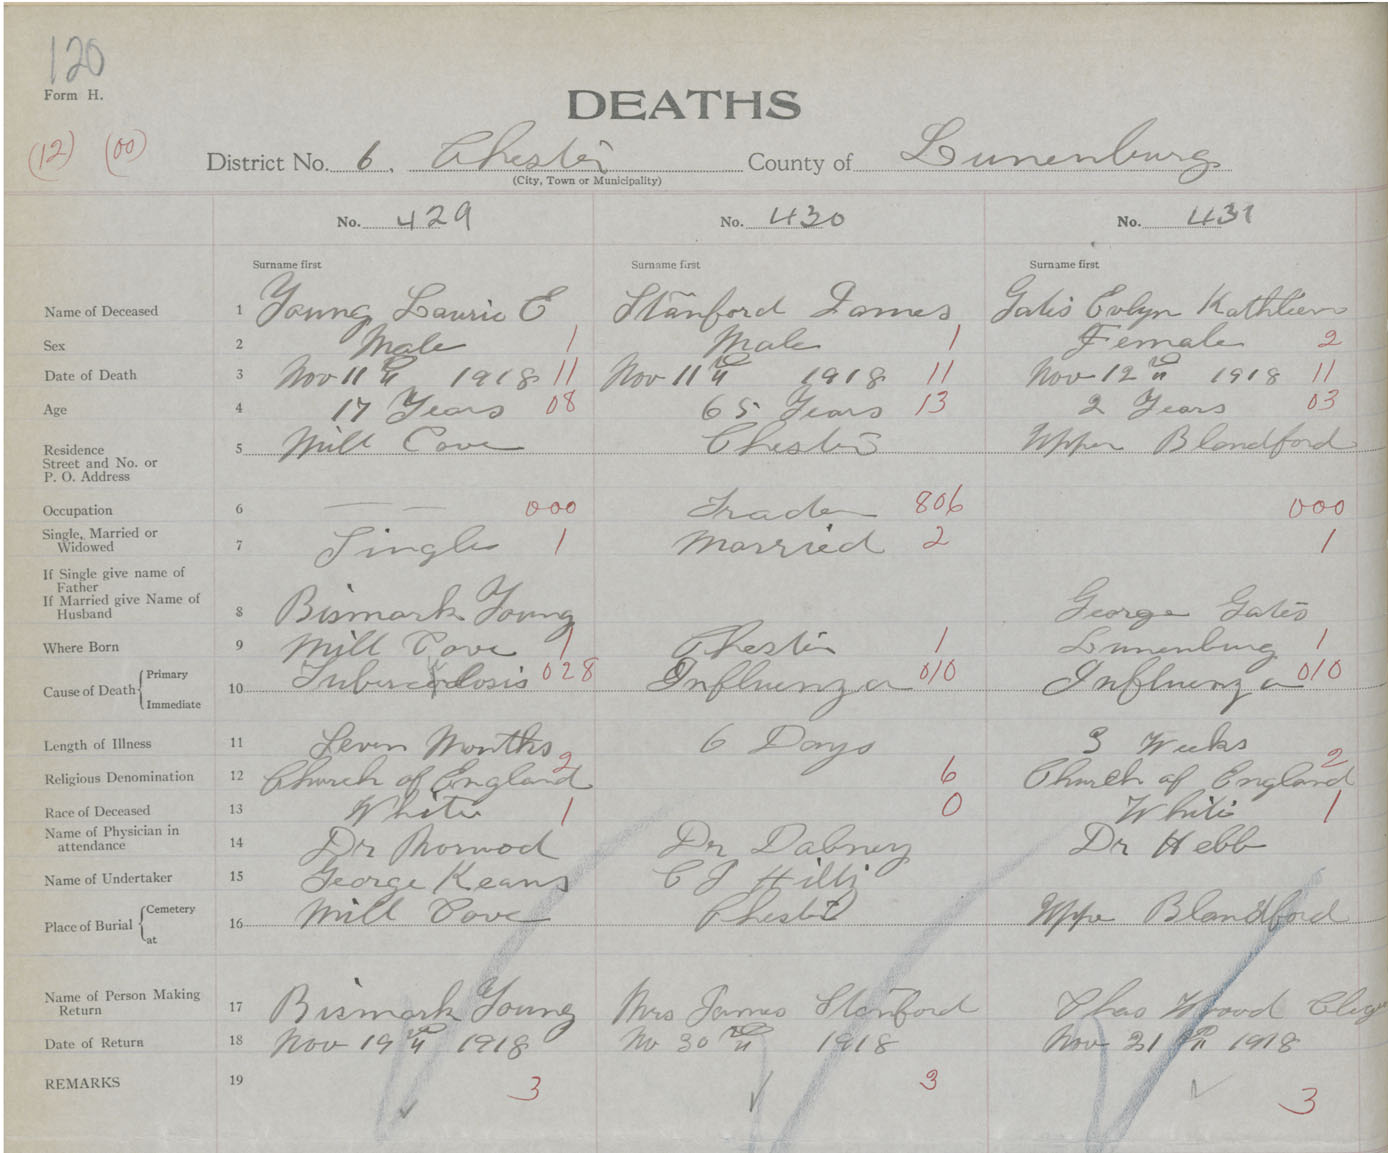 120
Form H.
DEATHS
(12) (00)
District No. 6. Chester County of Lunenburg
(City, Town or Municipality)
No. 429 No. 430 No. 431
Surname first Surname first Surname first
Name of Deceased 1 Young Laurie E Stanford James Gates Evlyn Kathleen
Sex 2 Male 1 Male 1 Female 2
Date of Death 3 Nov 11th 1918 11 Nov 11th 1918 11 Nov 12th 1918 11
Age 4 17 Years 08 65 Years 13 2 Years 03
Residence
Street and No. or
P. O. Address
5 Mill Cove Chester Upper Blandford
Occupation 6 — — 000 Trader 806 000
Single, Married or
Widowed
7 Single 1 Married 2 1
If Single give name of
Father
If Married give Name of
Husband
8 Bismark Young George Gates
Where Born 9 Mill Cove 1 Chester 1 Lunenburg 1
Cause of Death { Primary
Immediate
10 Tuberculosis 028 Influenza 010 Influenza 010
Length of Illness 11 Seven Months 6 Days 3 Weeks
Religious Denomination 12 Church of England 2 6 Church of England 2
Race of Deceased 13 White 1 0 White 1
Name of Physician in
attendance
14 Dr Dr Dabney Dr Hebb
Name of Undertaker 15 George Keans C J Hiltz
Place of Burial { Cemetery
at
16 Mill Cove Chester Uppe Blandford
Name of Person Making
Return
17 Bismark Young Mrs James Stanford Chas Wood
Date of Return 18 Nov 19th 1918 No 30th 1918 Nov 21th 1918
REMARKS 19 3 3 3